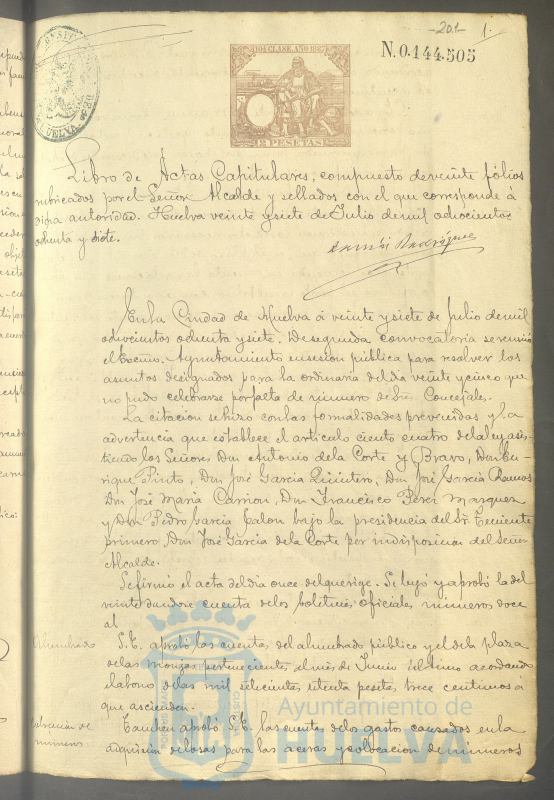 -201-
1.
N.0.144.505
10ª CLASE. AÑO 1887
2 PESETAS
HUELVA
Libro de Actas Capitulares, compuesto de veinte fólios
rubricados por el Señor Alcalde y sellados con el que corresponde á
dicha autoridad. Huelva veinte y siete de Julio de mil ochocientos
ochenta y siete.
En la Ciudad de Huelva á veinte y siete de Julio de mil
ochocientos ochenta y siete. De segunda convocatoria se reunió
el Excmo. Ayuntamiento en sesion pública para resolver los
asuntos designados para la ordinaria del dia veinte y cinco que
no pudo celebrarse por falta de número de Sres. Concejales.
La citacion se hizo con las formalidades prevenidas y la
advertencia que establece el artículo ciento cuatro de la ley asis-
tiendo los Señores Don Antonio de la Corte y Bravo, Don En-
rique Pinto, Don José García Quintero, Don José García Ramos
Don José María Carrion, Don Francisco Perez Marquez
y Don Pedro García Talon bajo la presidencia del Sr. Teniente
primero, Don José García de la Corte por indisposicion del Señor
Alcalde.
Se firmó el acta del dia once del que rige. Se leyó y aprobó la del
veinte dandose cuenta de los boletines oficiales números doce
al
Alumbrado
S.E. aprobó las cuentas del alumbrado público y el de la plaza
de las monjas pertenecientes al mes de Junio último acordando
el abono de las mil setecientas setenta pesetas trece centimos á
que ascienden.
números
Tambien aprobó S.E. las cuentas de los gastos causados en la
adquisicion de losas para las aceras y colocacion de números
Ayuntamiento de
HUELVA